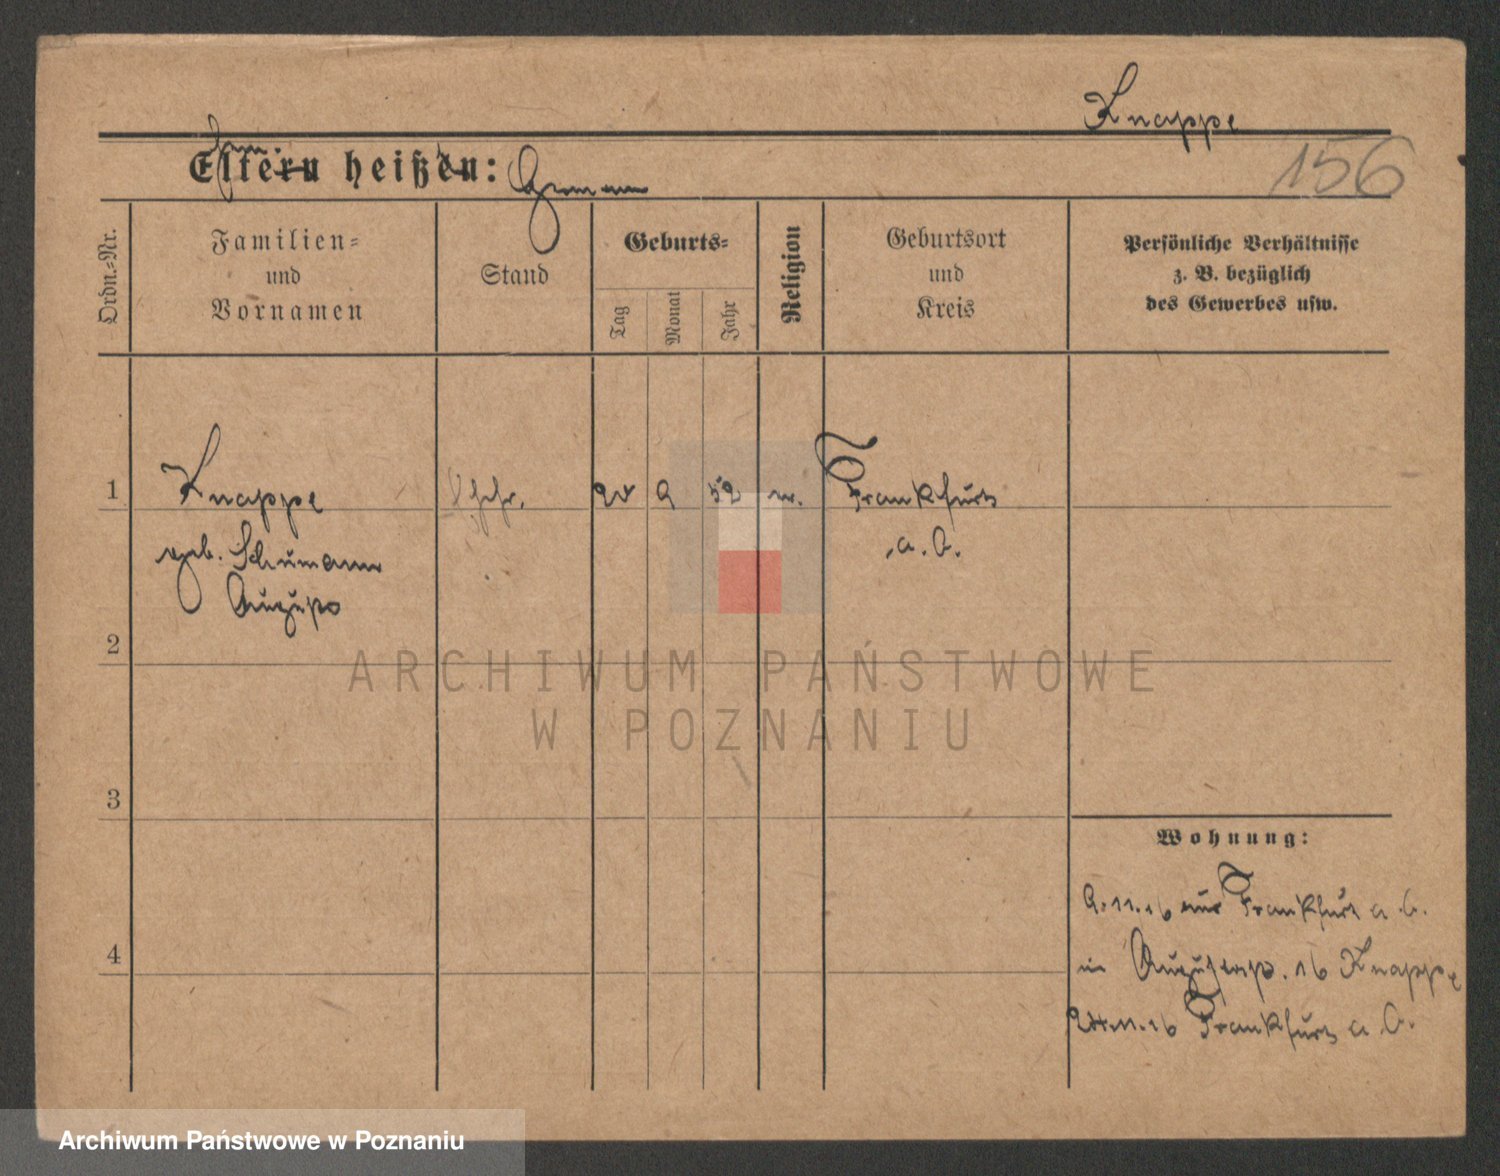 Knappe
156
Eltern heißen: Hermann
Ordn.=Nr.
Familien=
und
Vornamen
Stand
Geburts=
Tag
Monat
Jahr
Religion
Geburtsort
und
Kreis
Persönliche Verhältnisse
z. B. bezüglich
des Gewerbes usw.
1
Knappe
9
52
Frankfurt
a. O.
geb. Schumann
Auguste
2
ARCHIWUM PAŃSTWOWE
W POZNANIU
3
Wohnung:
9.11.16 aus Frankfurt a. O.
4
in Augustastr. 16 Knappe
11.16 Frankfurt a. O.
Archiwum Państwowe w Poznaniu